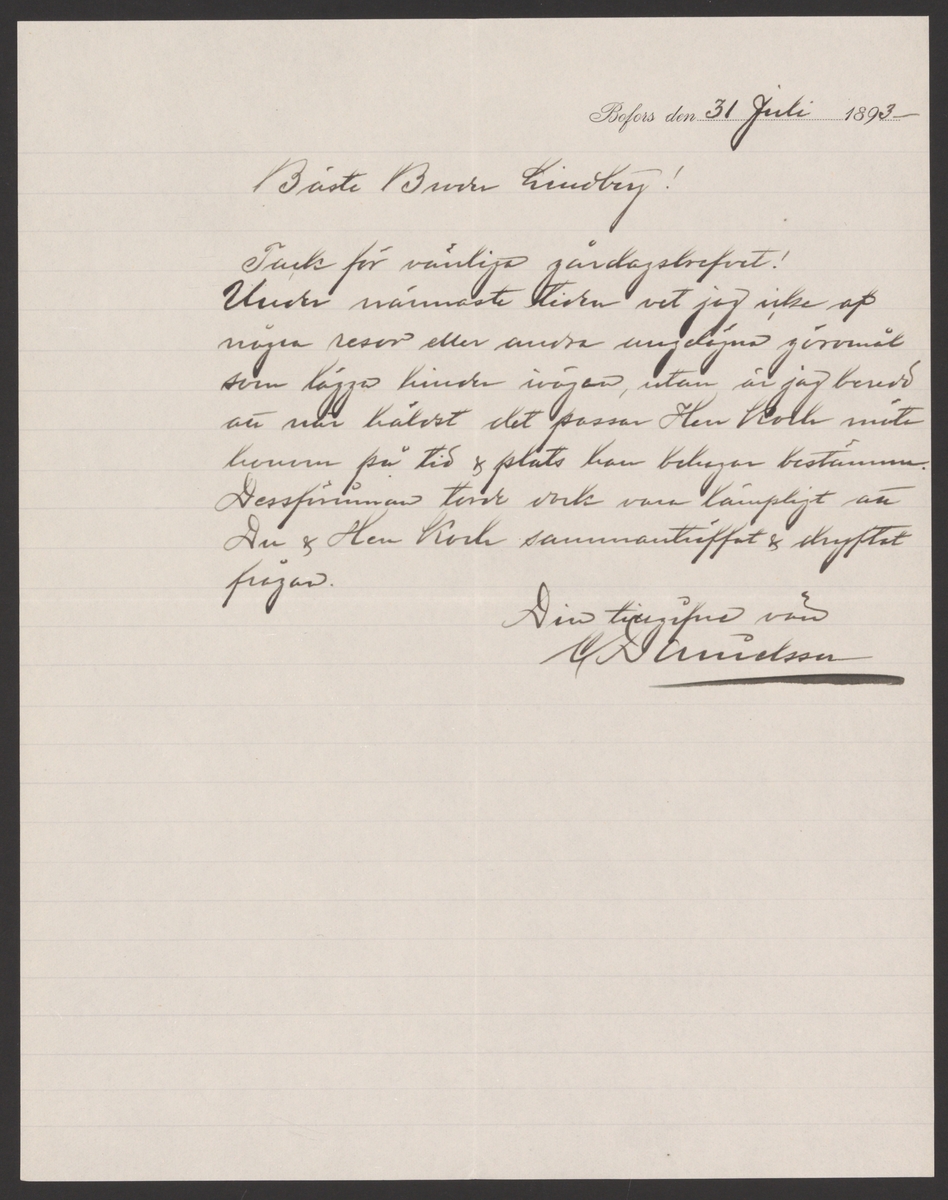 Bofors den 31 Juli 1893
Bäste Broder Lindberg!
Tack för vänliga gårdagsbrefvet!
Under närmaste tiden vet jag icke af
några resor eller andra göromål
som lägga hinder ivägen, utan är jag beredd
att när häldst det passar Herr Koch möta
honom på tid & plats han behagar bestämma.
Dessförinnan torde dock vara lämpligt att
Du & Herr Koch sammanträffat & dryftat
frågan.
Din tillgifne vän